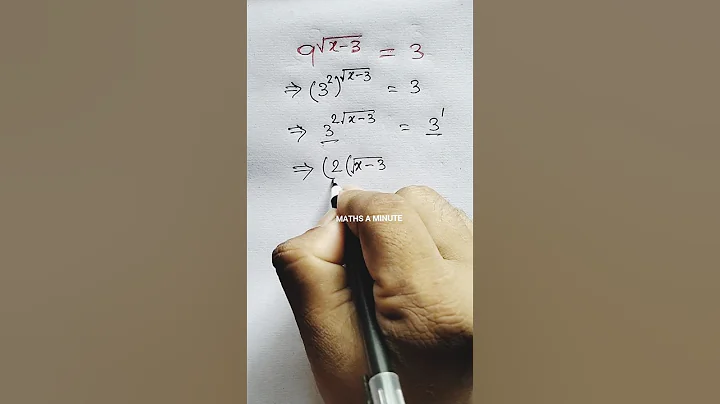 9^√(x-3) = 3
⇒ (3^2)^√(x-3) = 3
⇒ 3^2√(x-3) = 3^1
⇒ (2(√x-3
MATHS A MINUTE